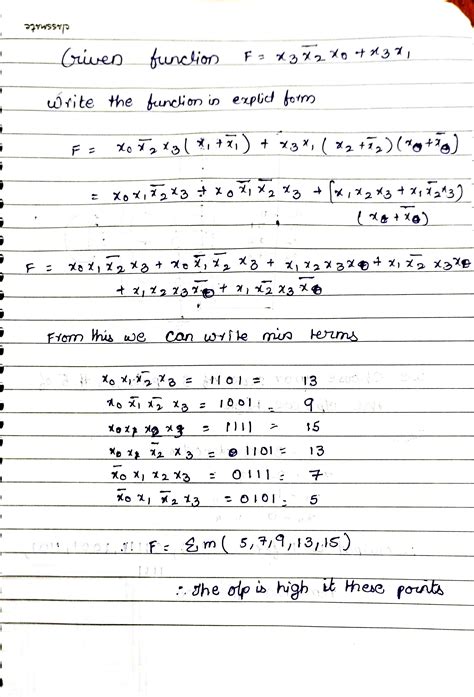 classmate
Given function F = x₃x̅₂x₀ + x₃x₁
Write the function in explid form
F = x₀x̅₂x₃(x₁+x̅₁) + x₃x₁(x₂+x̅₂)(x₀+x̅₀)
= x₀x₁x̅₂x₃ + x₀x̅₁x̅₂x₃ + [x₁x₂x₃ + x₁x̅₂x₃)
(x₀+x̅₀)
F = x₀x₁x̅₂x₃ + x₀x̅₁x̅₂x₃ + x₁x₂x₃x₀ + x₁x̅₂x₃x₀
+ x₁x₂x₃x̅₀ + x₁x̅₂x₃x̅₀
From this we can write min terms
x₀x₁x̅₂x₃ = 1101 = 13
x₀x̅₁x̅₂x₃ = 1001 = 9
x₀x₁x₂x₃ = 1111 = 15
x₀x₁x̅₂x₃ = 1101 = 13
x̅₀x₁x₂x₃ = 0111 = 7
x̅₀x₁x̅₂x₃ = 0101 = 5
∴ F = Σm(5,7,9,13,15)
∴ The o/p is high it these points